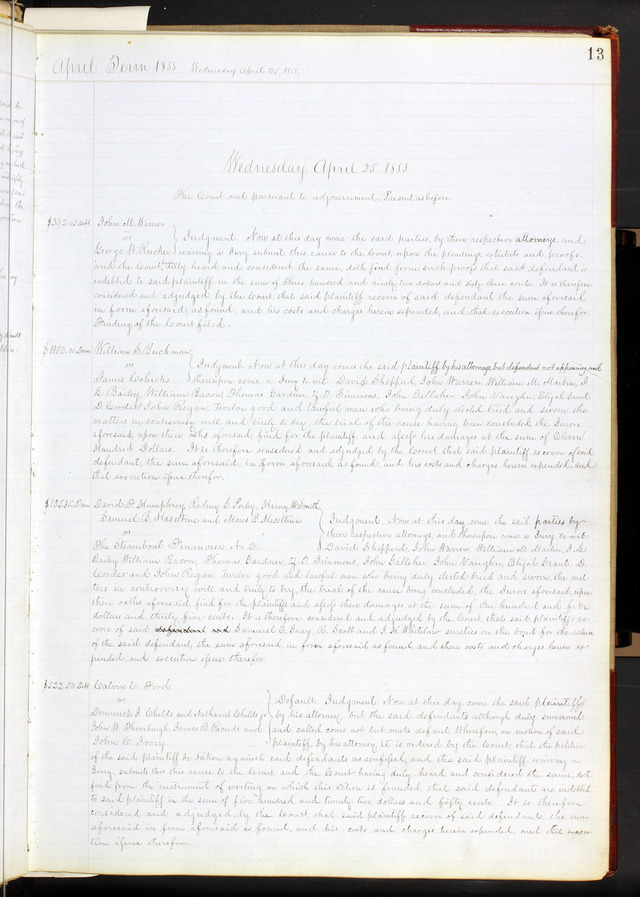 13
April Term 1855 Wednesday April 25, 1855.
Wednesday April 25 1855
The Court met pursuant to adjournment, Present as before
$392.63 Debt John M. Wimer
vs
Judgment Now at this day come the said parties, by their respective attorneys, and
George W. Rucker waiving a Jury submit this cause to the Court, upon the pleadings exhibits and proofs.
and the Court fully heard and considered the same, doth find from such proofs that said defendant is
indebted to said plaintiff in the sum of Three hundred and ninety two dollars and sixty three cents. It is therefore
considered and adjudged by the Court, that said plaintiff recover of said defendant the sum aforesaid
in form aforesaid, as found, and his costs and charges herein expended, and that execution issue therefor.
Finding of the Court filed.
$1100.00 Dam William S. Buckman
vs
Judgment Now at this day comes the said plaintiff by his attorneys but defendant not appearing and
James thereupon come a Jury to wit: David Sheppard, John Warren, William M. Martin, J.
E. Bailey, William Bacon, Thomas Gardner, Z. T. Simmons, John Gallaher John Vaughn, Elijah Grant
D. Corder John Regan, twelve good and lawful men who being duly elected tried and sworn the
matters in controversy well and truly to try, the trial of the cause having been concluded the Jurors
aforesaid, upon their oaths aforesaid, find for the plaintiff and assess his damages at the sum of Eleven
Hundred Dollars. It is therefore considered and adjudged by the Court, that said plaintiff recover of said
defendant, the sum aforesaid, in form aforesaid, as found, and his costs and charges herein expended, and
that execution issue therefor.
$105.35 Dam David D. Humphrey, Rodney C. Farley, Harvey W. Smith,
Samuel B. Haseltine and Moses B. Haseltine
vs
Judgment, Now at this day, come the said parties by
their respective attorneys, and thereupon come a Jury to wit:
The Steamboat Financier, No 2. David Sheppard, John Warren, William M. Martin, J. E.
Bailey William Bacon, Thomas Gardner, Z. T. Simmons, John Gallaher, John Vaughn, Elijah Grant, D.
Corder and John Regan, twelve good and lawful men who being duly elected tried and sworn, the mat-
ters in controversy well and truly to try, the trial of the cause being concluded, the Jurors aforesaid, upon
their oaths aforesaid, find for the plaintiffs and assess their damages at the sum of One hundred and five
dollars and thirty five cents. It is therefore considered and adjudged by the Court, that said plaintiffs re-
cover of said defendant and Samuel C. Gray, R. Scott and J. H. Whitelaw sureties on the bond for the release
of the said defendant, the sum aforesaid, in form aforesaid as found, and their costs and charges herein ex-
pended, and execution issue therefor.
$522.50 Debt Calvin C. Ford
vs
Default Judgment, Now at this day come the said plaintiff
Dominick J. Childs and Nathaniel Childs jr by his attorney but the said defendants although duly summoned
John W. Thornburgh, James B. and and called come not but make default, Wherefore, on motion of said
John C. Ivory. plaintiff, by his attorney, it is ordered by the Court, that the petition
of the said plaintiff be taken against said defendants as confessed, and the said plaintiff, waiving a
Jury, submits this this cause to the Court, and the Court having duly heard and considered the same, doth
find from the instrument of writing on which this action is founded, that said defendants are indebted
to said plaintiff in the sum of five hundred and twenty two dollars and fifty cents. It is therefore
considered and adjudged, by the Court, that said plaintiff recover of said defendants, the sum
aforesaid in form aforesaid as found, and his costs and charges herein expended, and that execu-
tion issue therefor.